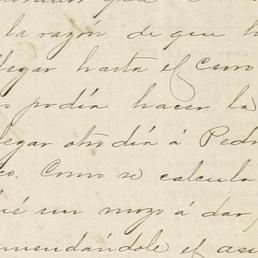 la razón de que h
llegar hasta el Cerro
o podía hacer la
legar otro día á Pedr
co. Como se calcula
ié un mozo á dar,
mendándole el asu